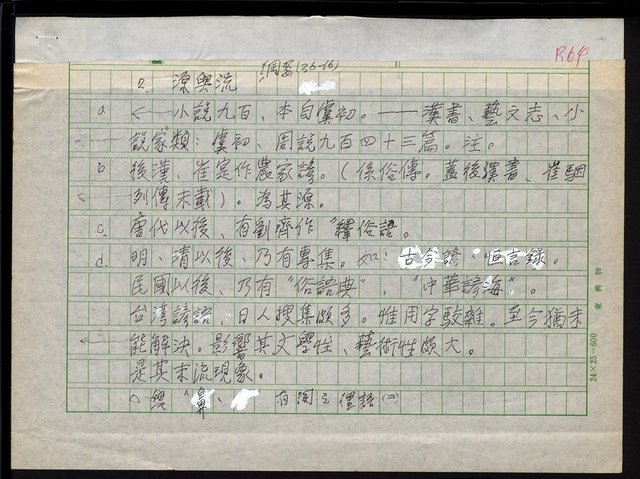 P.64
綱要(36-16)
2. 源與流
a ←——小說九百、本自虞初。——漢書、藝文志、小
說家類：虞初、周說九百四十三篇。注。
b 後漢、崔寔作農家諺。(係俗傳。蓋後漢書、崔駰
列傳未載)。為其源。
c. 唐代以後、有劉齊作"釋俗語。
d. 明、清以後、乃有專集。如：古今諺、恒言錄。
民國以後、乃有"俗語典"，"中華諺海"。
台灣諺語、日人搜集頗多。惟用字駁雜。至今猶未
能解決。影響其文學性、藝術性頗大。
是其末流現象。
與"鼻、 有関之俚語(二)
24×25=600